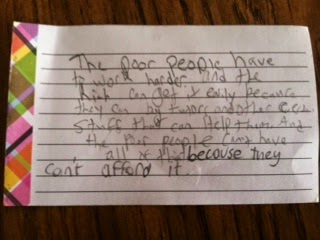 The poor people have
to work harder and the
Rich can get it easily because
they can buy tutors and other
Stuffs that can help them. And
the poor people can't have
all of that because they
can't afford it.